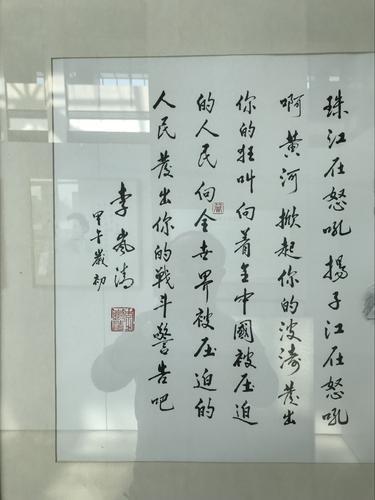 珠江在怒吼揚子江在怒吼
啊黄河掀起你的波濤發出
你的狂叫向着全中國被压迫
的人民向全世界被压迫的
人民發出你的戰斗警告吧
李嵐清
甲午歲初